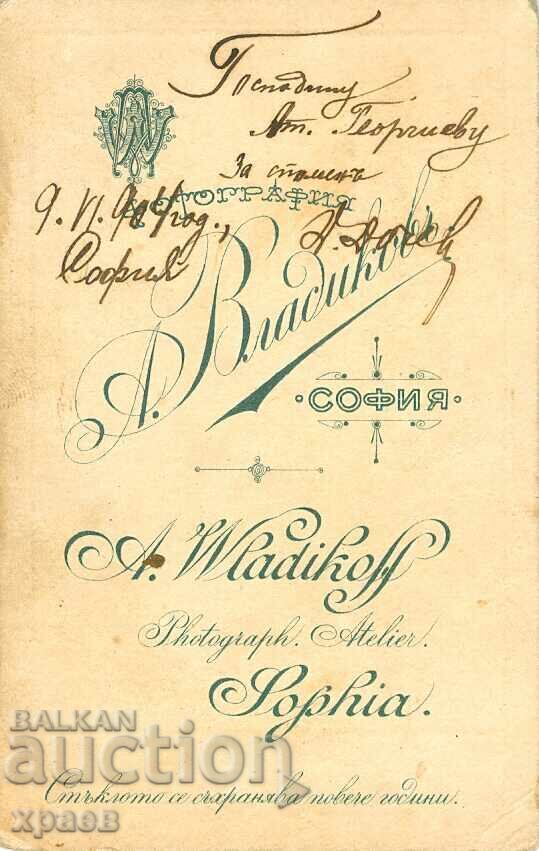 Господину
Ат. Георгиеву
За споменъ
ФОТОГРАФИЯ
9. VI. 904 год.,
София
А. Владиковъ
·СОФИЯ·
A. Wladikoff
Photograph. Atelier.
Sophia.
BALKAN
auction
Стъклото се съхранява повече години.
храев